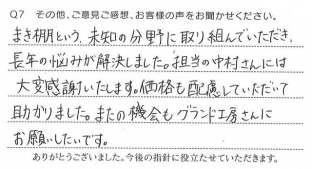 Q7 その他、ご意見ご感想、お客様の声をお聞かせください。
まき棚という、未知の分野に取り組んでいただき、
長年の悩みが解決しました。担当の中村さんには
大変感謝いたします。価格も配慮していただいて
助かりました。またの機会もグランド工房さんに
お願いしたいです。
ありがとうございました。今後の指針に役立たせていただきます。